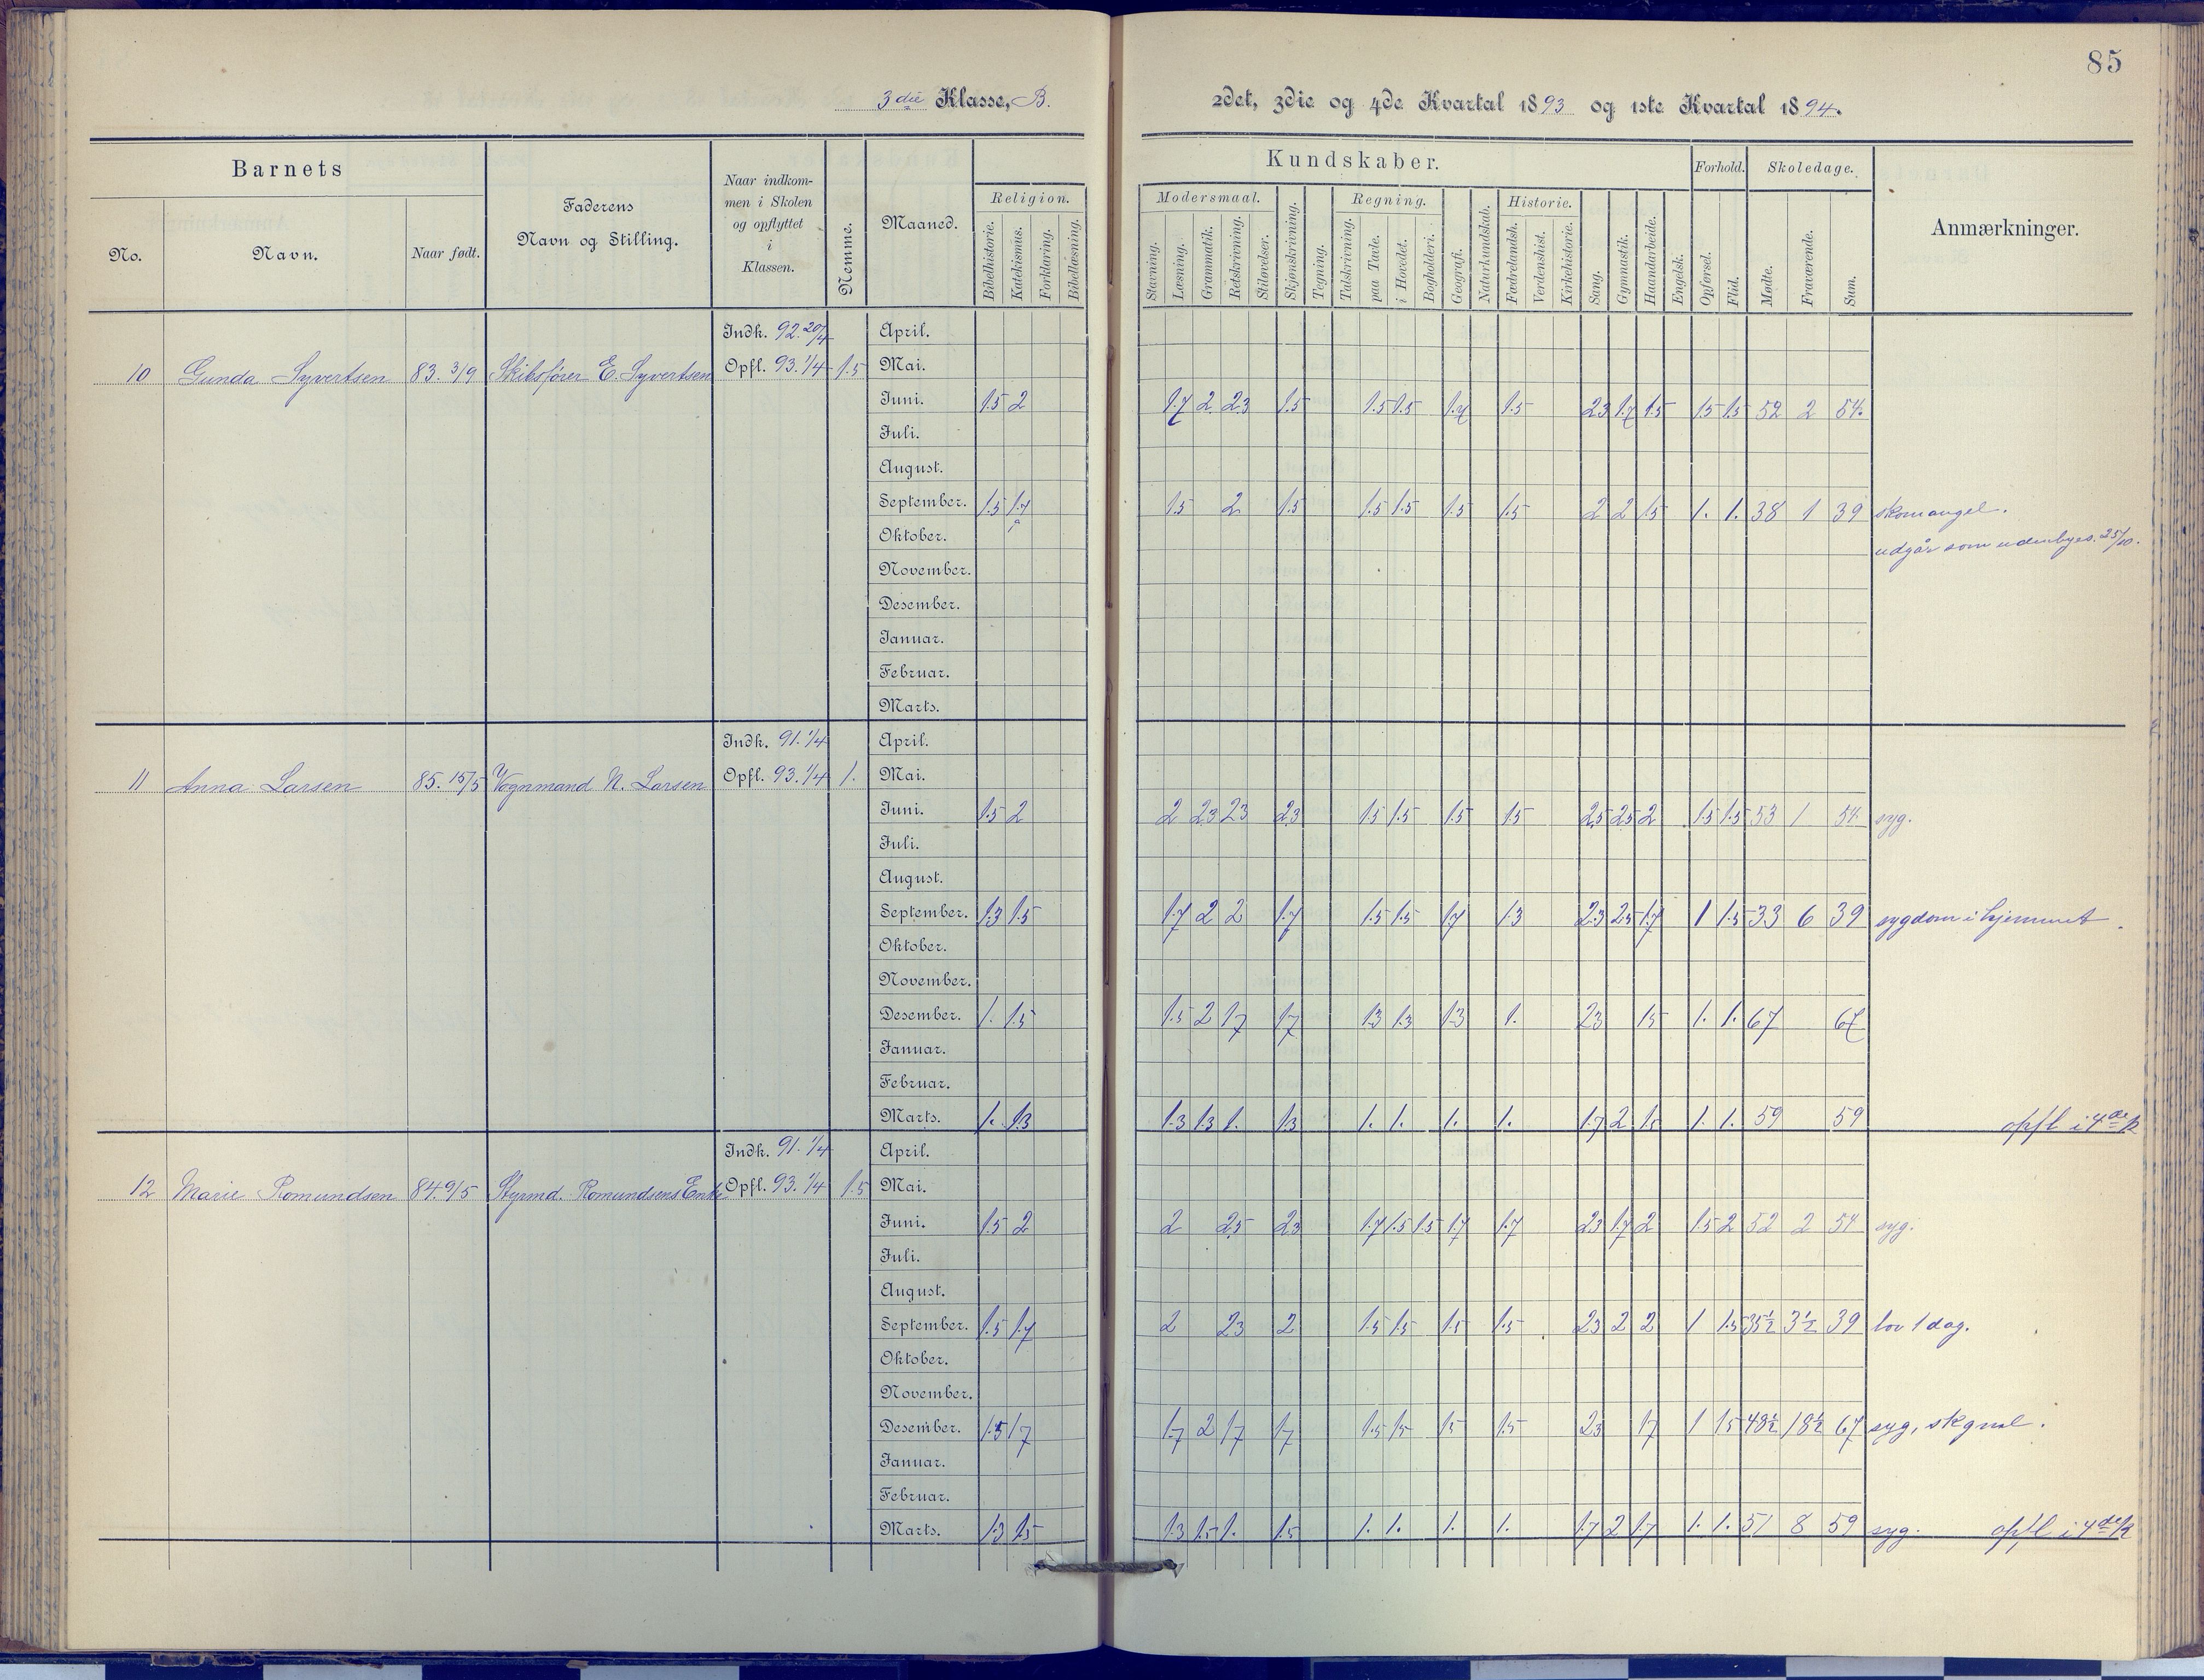 85
3die Klasse, B.
2det, 3die og 4de Kvartal 1893 og 1ste Kvartal 1894.
Barnets
No.
Navn.
Naar født.
Faderens
Navn og Stilling.
Naar indkom-
men i Skolen
og opflyttet
i
Klassen.
Nemme.
Maaned.
Religion.
Bibelhistorie.
Katekismus.
Forklaring.
Bibellæsning.
Kundskaber.
Modersmaal.
Stavning.
Læsning.
Grammatik.
Retskrivning.
Stiløvelser.
Skjønskrivning.
Tegning.
Regning.
Talskrivning.
paa Tavle.
i Hovedet.
Bogholderi.
Geografi.
Naturkundskab.
Historie.
Fædrelandsh.
Verdenshist.
Kirkehistorie.
Sang.
Gymnastik.
Haandarbeide.
Engelsk.
Forhold.
Opførsel.
Flid.
Skoledage.
Mødte.
Fraværende.
Sum.
Anmærkninger.
Indk. 92. 20/4 April.
10 Gunda Syvertsen 83. 3/9 Skibsfører E. Syvertsen Opfl. 93. 1/4 1.5 Mai.
Juni. 1.5 2 1.7 2 23 1.5 1.5 1.5 1.7 1.5 23 1.7 1.5 1.5 1.5 52 2 54
Juli.
August.
September. 1.5 1.7 1.5 2 1.5 1.5 1.5 1.5 1.5 2 2 1.5 1. 1. 38 1 39 skomangel.
Oktober. udgår som udenbyes. 25/10.
November.
Desember.
Januar.
Februar.
Marts.
Indk. 91. 1/4 April.
11 Anna Larsen 85. 15/5 Vognmand N. Larsen Opfl. 93. 1/4 1. Mai.
Juni. 1.5 2 2 23 23 23 1.5 1.5 1.5 1.5 25 25 2 1.5 1.5 53 1 54 syg.
Juli.
August.
September. 1.3 1.5 1.7 2 2 1.7 1.5 1.5 1.7 1.3 23 25 1.7 1 1.5 33 6 39 sygdom i hjemmet.
Oktober.
November.
Desember. 1. 1.5 1.5 2 1.7 1.7 1.3 1.3 1.3 1. 23 1.5 1. 1. 67 67
Januar.
Februar.
Marts. 1. 1.3 1.3 1.3 1. 1.3 1. 1. 1. 1. 1.7 2 1.5 1. 1. 59 59 opfl i 4de k
Indk. 91. 1/4 April.
12 Marie Romundsen 84. 9/5 Styrmd. Romundsens Enke Opfl. 93. 1/4 1.5 Mai.
Juni. 1.5 2 2 25 23 1.7 1.5 1.5 1.7 1.7 23 1.7 2 1.5 2 52 2 54 syg.
Juli.
August.
September. 1.5 1.7 2 23 2 1.5 1.5 1.5 1.5 23 2 2 1 1.5 35½ 3½ 39 lov 1 dag.
Oktober.
November.
Desember. 1.5 1.7 1.7 2 1.7 1.7 1.5 1.5 1.5 1.5 23 1.7 1 1.5 48½ 18½ 67 syg,
Januar.
Februar.
Marts. 1.3 1.5 1.3 1.5 1. 1.5 1. 1. 1. 1. 1.7 2 1.7 1. 1. 51 8 59 syg. opfl i 4de k